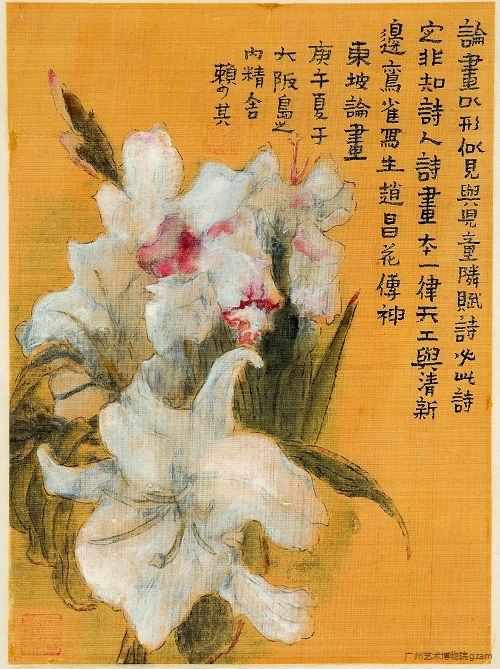 論畫以形似見與兒童隣賦詩必此詩
定非知詩人詩畫本一律天工與清新
邊鸞雀寫生趙昌花傳神
東坡論畫
庚午夏于
大阪島之
內精舍
賴少其
广州艺术博物院gzam